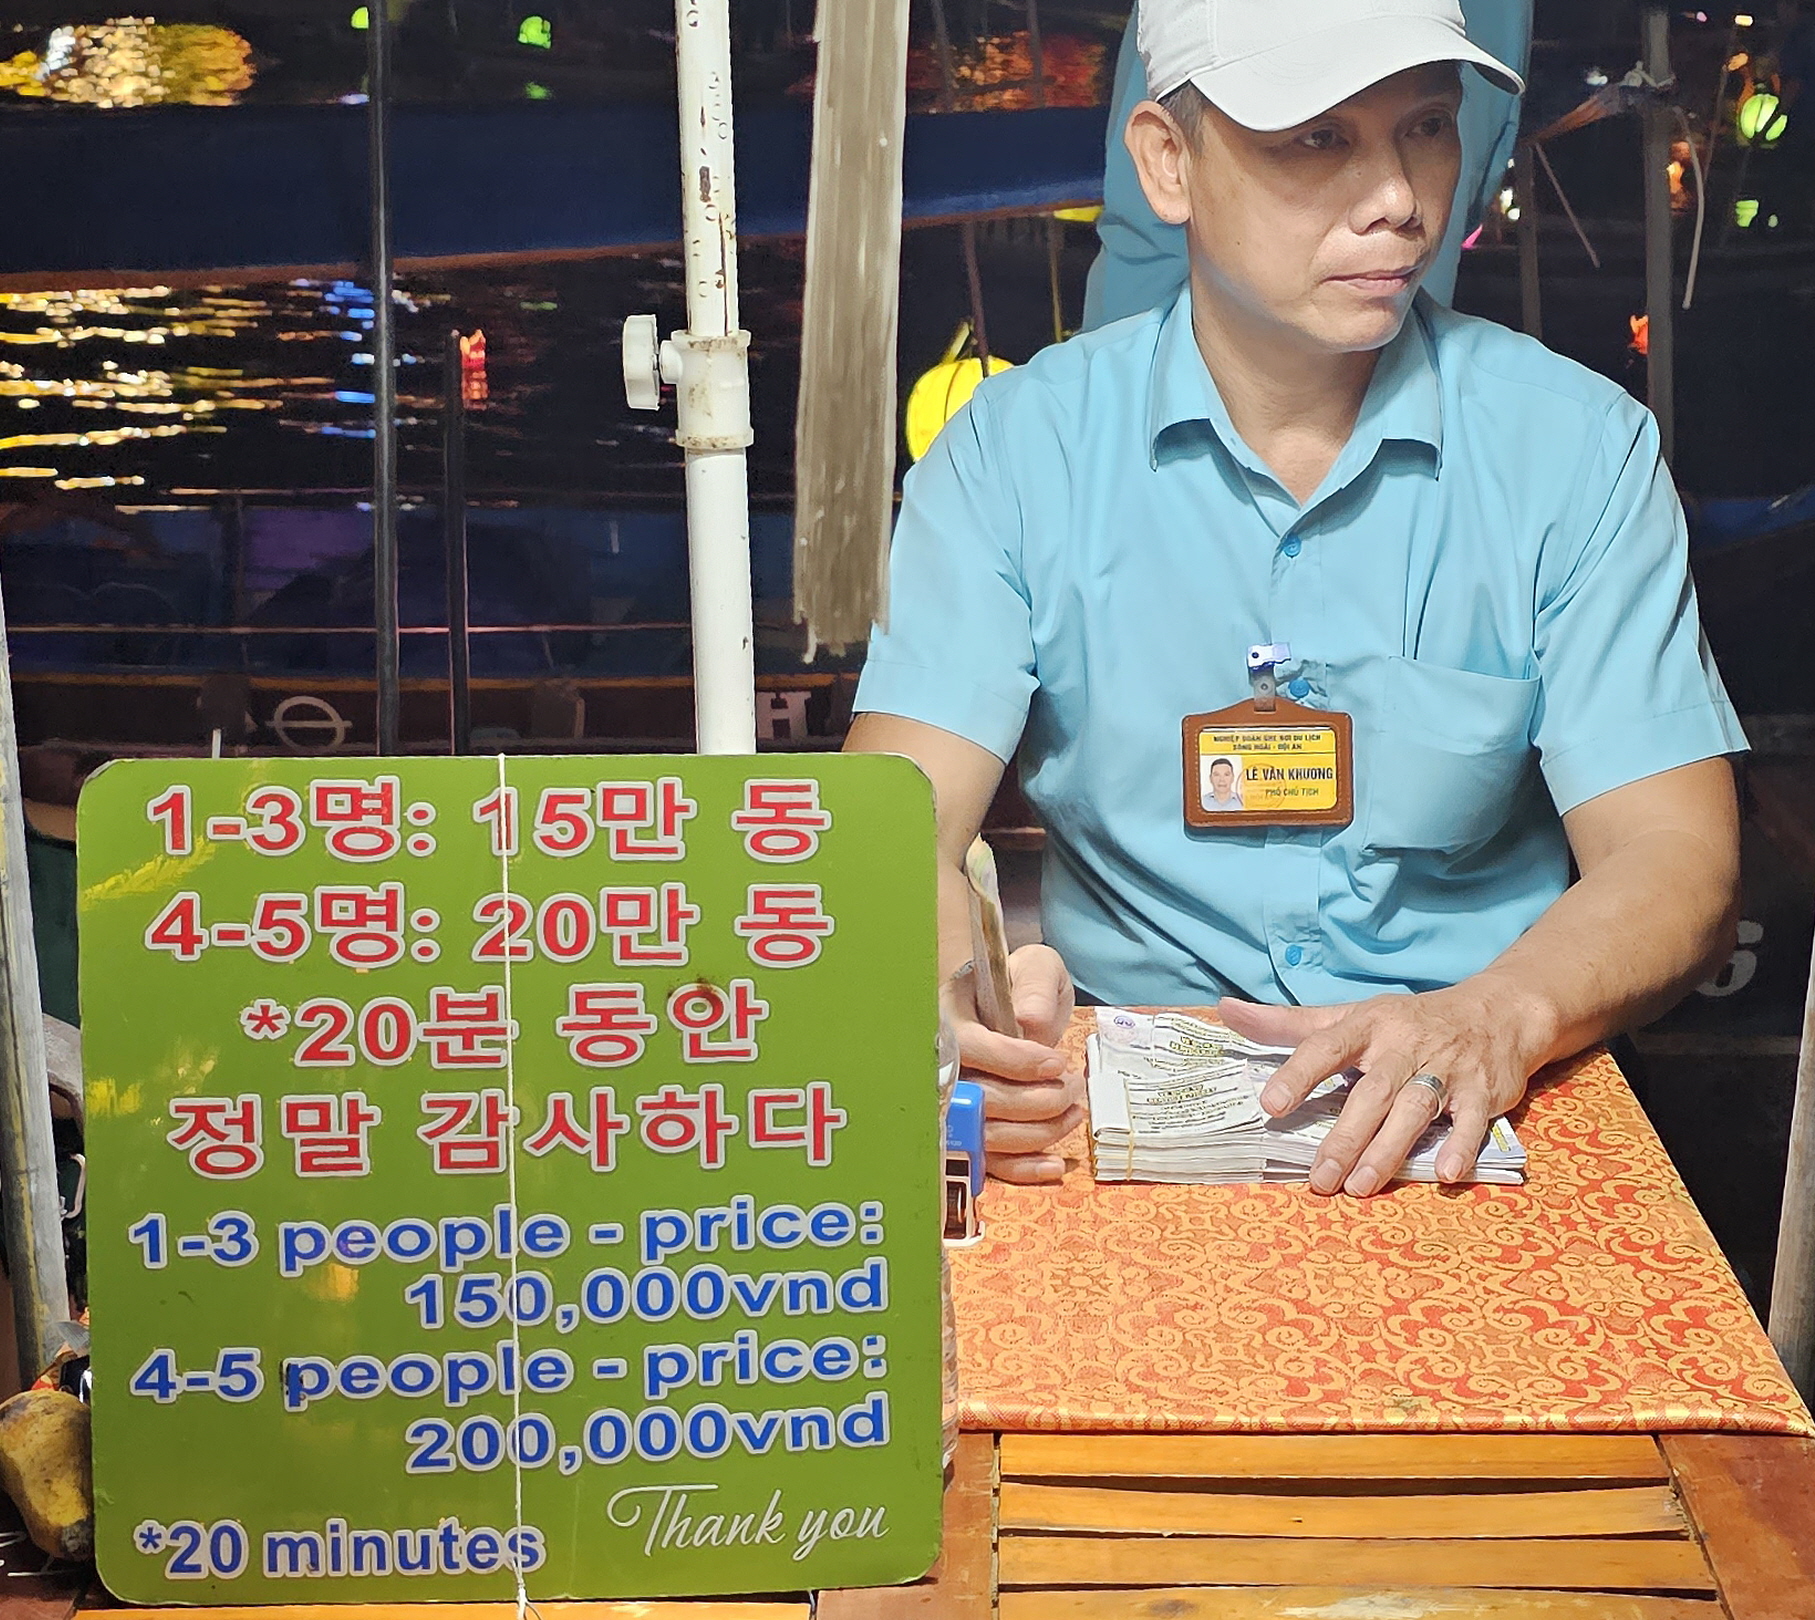 1-3명: 15만 동
4-5명: 20만 동
*20분 동안
정말 감사하다
1-3 people - price:
150,000vnd
4-5 people - price:
200,000vnd
*20 minutes
Thank you
NGHIỆP ĐOÀN GHE BƠI DU LỊCH
SÔNG HOÀI - HỘI AN
LÊ VĂN KHƯƠNG
PHÓ CHỦ TỊCH
H